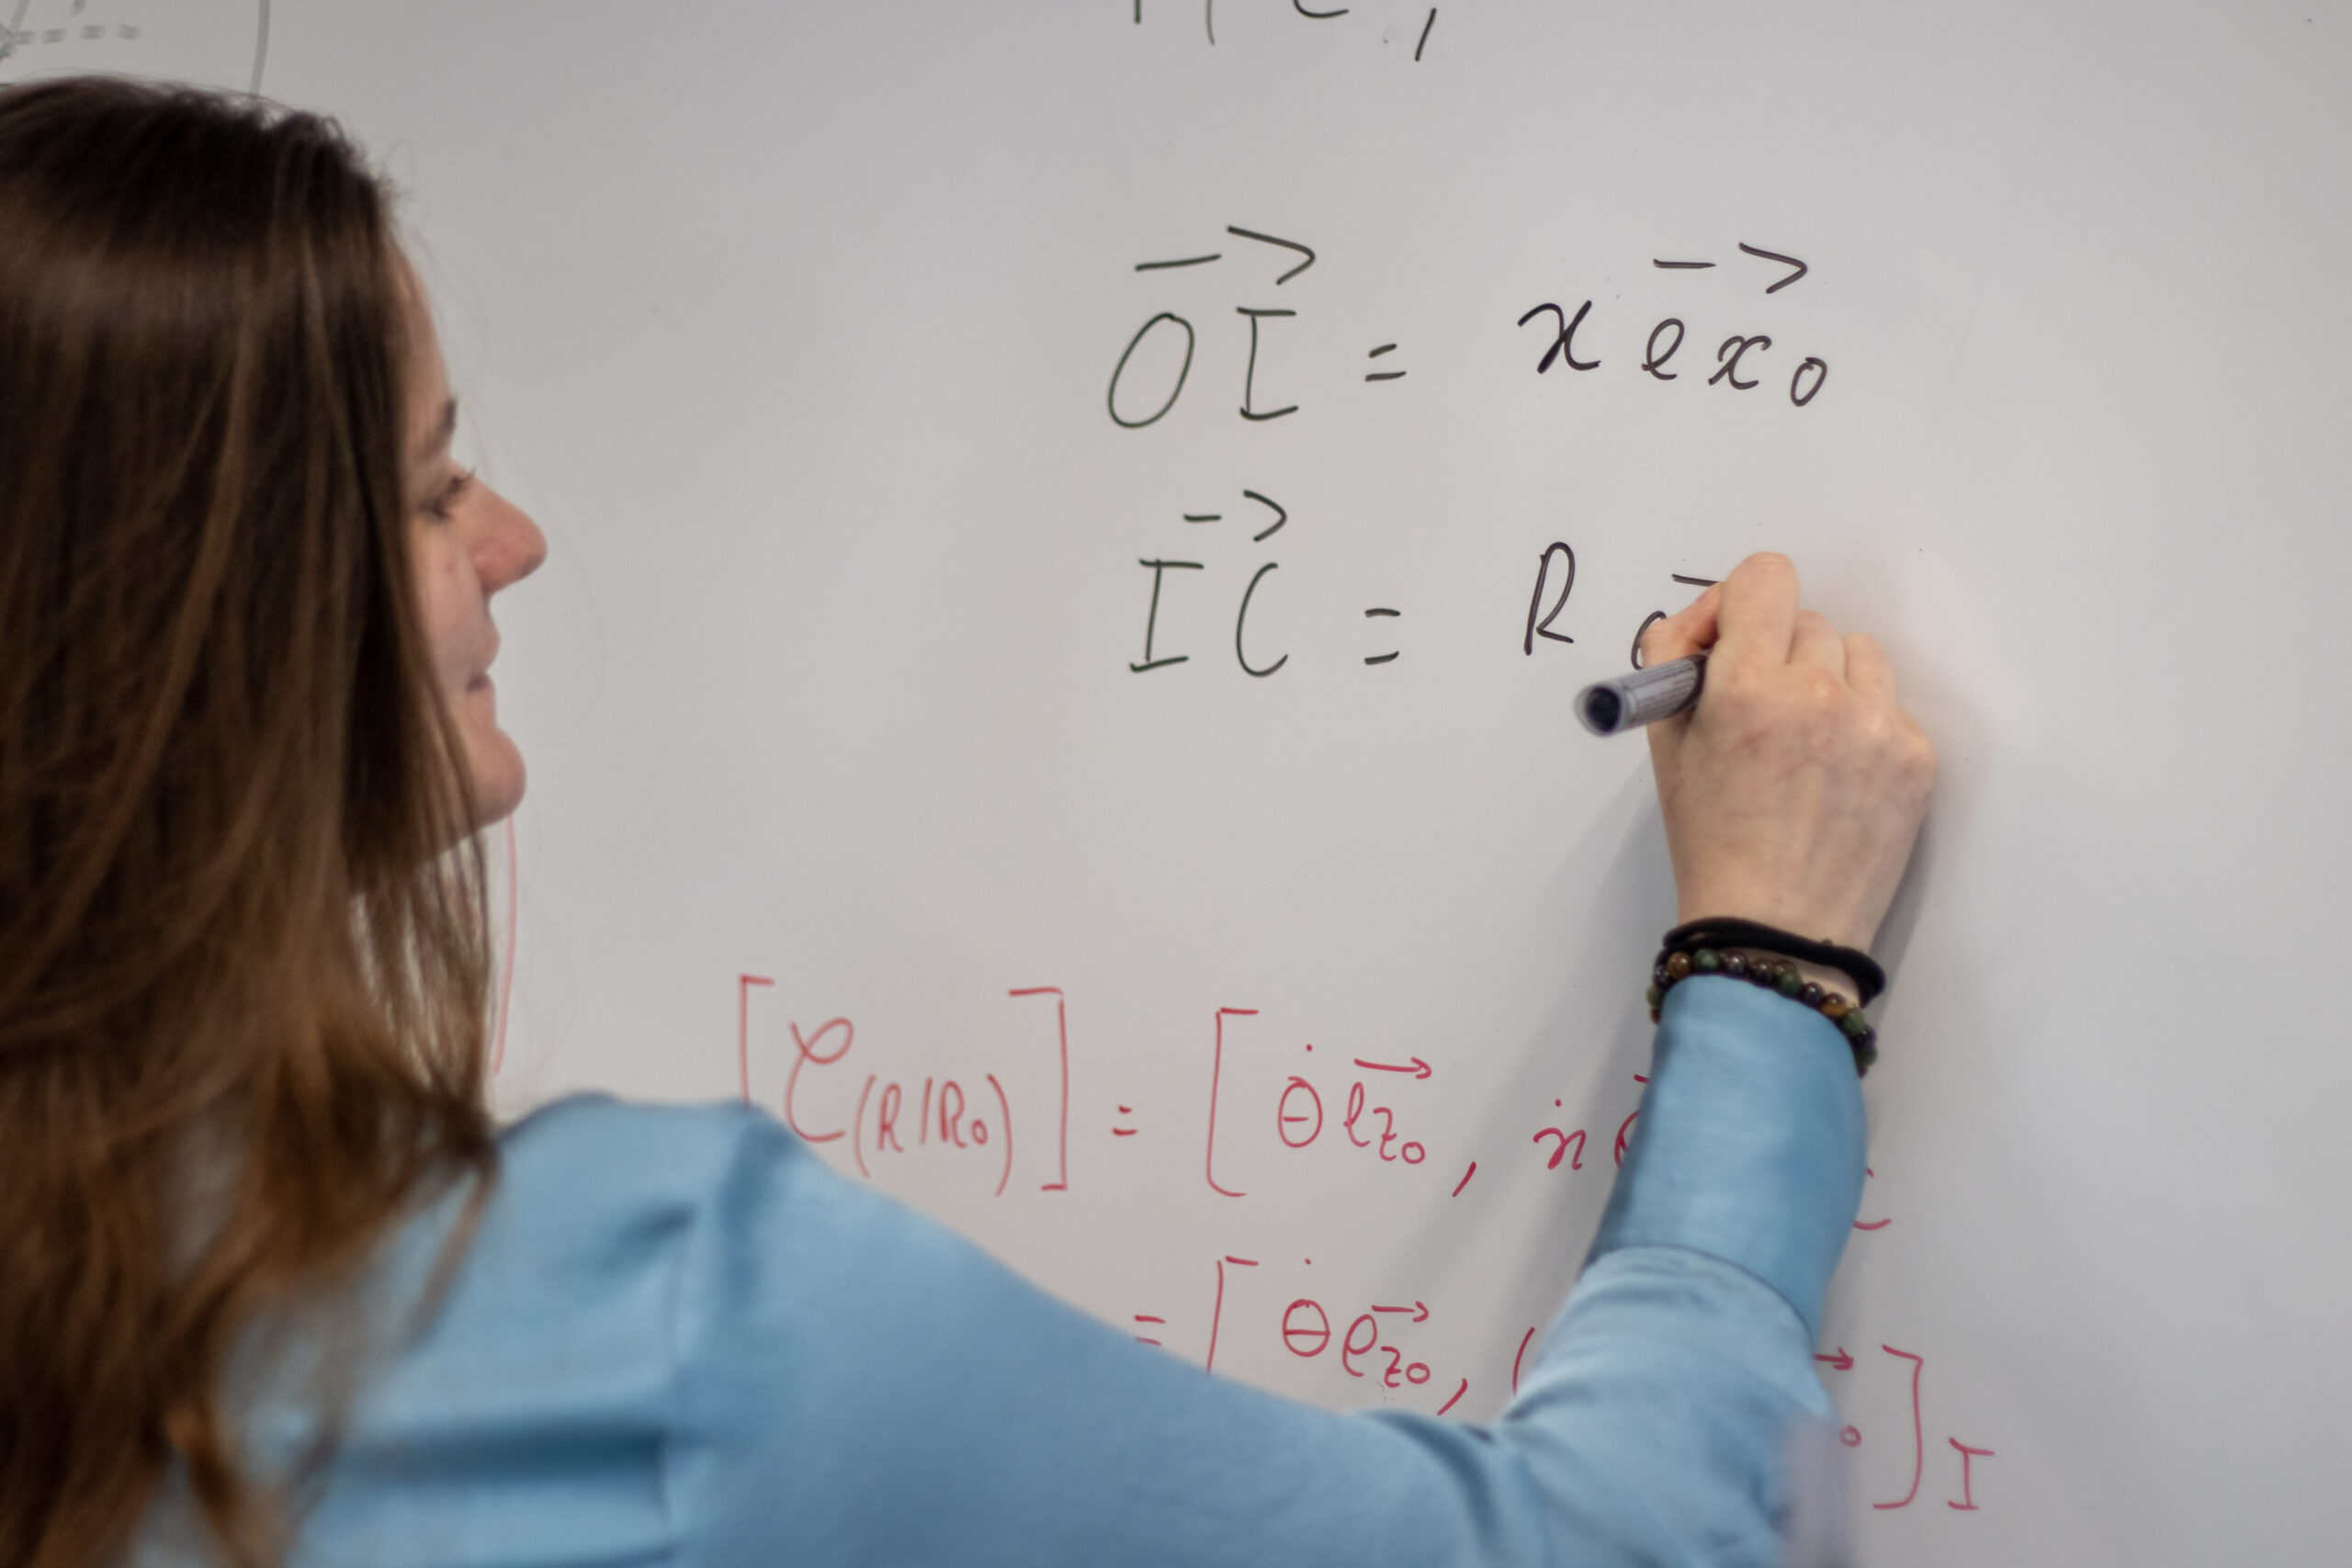 → →
OI = x ex₀
→
IC = R
[𝒞(R/R₀)] = [θ̇ ez₀→, ẋ
= [θ̇ ez₀→, ( →₀]I